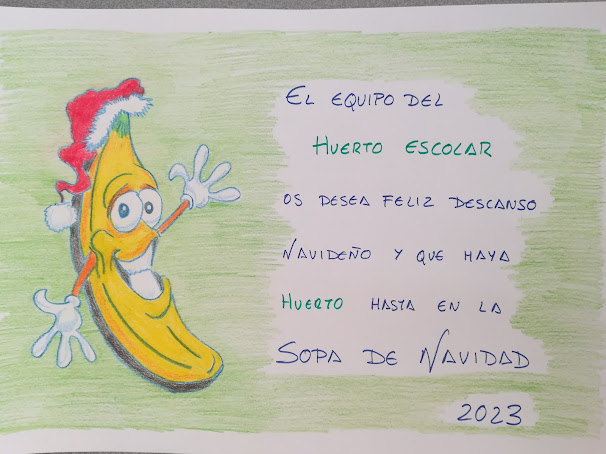 EL EQUIPO DEL
HUERTO ESCOLAR
OS DESEA FELIZ DESCANSO
NAVIDEÑO Y QUE HAYA
HUERTO HASTA EN LA
SOPA DE NAVIDAD
2023